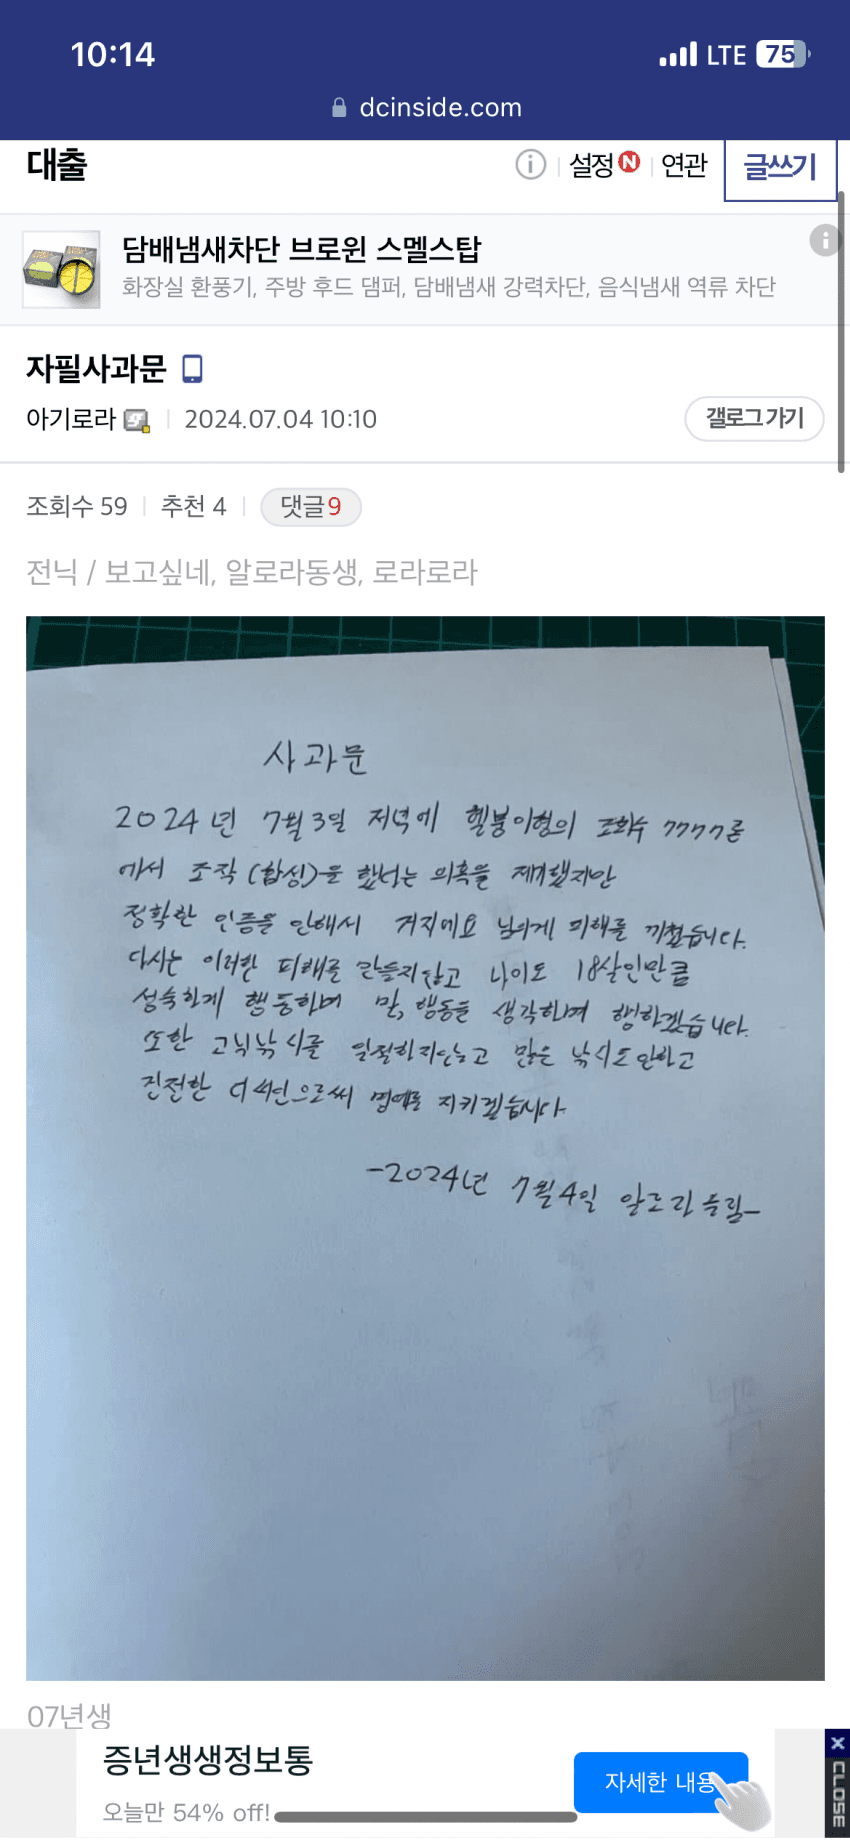 10:14
LTE 75
dcinside.com
대출
설정 N 연관 글쓰기
담배냄새차단 브로윈 스멜스탑
화장실 환풍기, 주방 후드 댐퍼, 담배냄새 강력차단, 음식냄새 역류 차단
자필사과문
아기로라 2024.07.04 10:10
갤로그 가기
조회수 59 추천 4 댓글 9
전닉 / 보고싶네, 알로라동생, 로라로라
사과문
2024년 7월 3일 저녁에 헬붕이형의 조회수 7777론
에서 조작 (합성)을 했다는 의혹을 제기했지만
정확한 인증을 안해서 거지에요 님에게 피해를 끼쳤습니다.
다시는 이러한 피해를 만들지않고 나이도 18살인만큼
성숙하게 행동하며 말, 행동을 생각하며 행하겠습니다.
또한 고닉낚시를 일절하지않고 많은 낚시도 안하고
진전한 으로써 명예를 지키겠습니다
-2024년 7월 4일 알로라 올림-
07년생
증년생생정보통
오늘만 54% off!
자세한 내용
X CLOSE